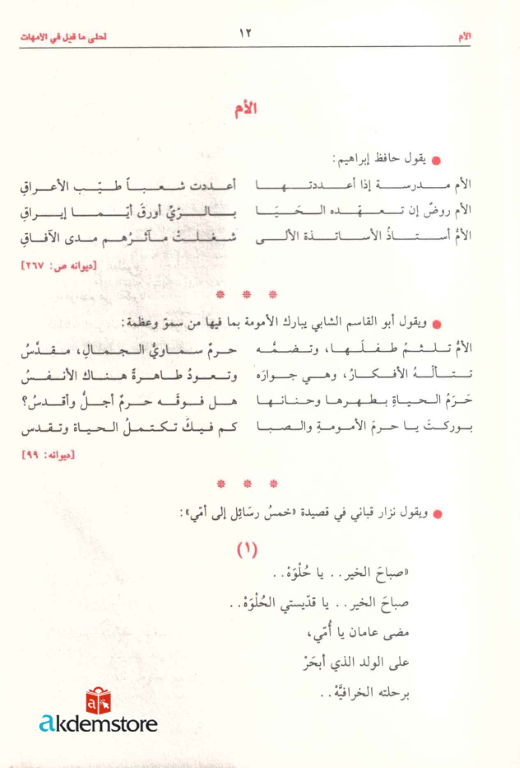 الأم ١٢ لحلى ما قيل في الأمهات
الأم
يقول حافظ إبراهيم:
الأم مـدرسـة إذا أعـددتـهـا أعـددت شـعـبـاً طـيّـب الأعـراقِ
الأم روضٌ إن تـعـهّـده الـحَـيَـا بـالـرّيِّ أورقَ أيّـمـا إيـراقِ
الأمُّ أسـتـاذُ الأسـاتـذة الألـى شـغـلـتْ مـآثـرُهـم مـدى الآفـاقِ
[ديوانه ص: ٢٦٧]
* * *
ويقول أبو القاسم الشابي يبارك الأمومة بما فيها من سموّ وعظمة:
الأمُّ تـلـثـمُ طـفـلَـهـا، وتـضـمُّـه حـرمٌ سـمـاويُّ الـجـمـالِ، مـقـدَّسُ
تـتـألّـهُ الأفـكـارُ، وهـي جـوارَه وتـعـودُ طـاهـرةً هـنـاك الأنـفـسُ
حَـرَمُ الـحـيـاةِ بـطـهـرهـا وحـنـانـهـا هـل فـوقَـه حـرمٌ أجـلُّ وأقـدسُ؟
بـوركـتَ يـا حـرمَ الأمـومـةِ والـصـبـا كـم فـيـكَ تـكـتـمـلُ الـحـيـاة وتـقـدس
[ديوانه: ٩٩]
* * *
ويقول نزار قباني في قصيدة «خمسُ رسَائِل إلى أمّي»:
(١)
«صباحَ الخير.. يا حُلْوَهْ..
صباحَ الخير.. يا قدّيستي الحُلْوَهْ..
مضى عامان يا أُمّي،
على الولد الذي أبحَرْ
برحلته الخرافيَّهْ..
a
akdemstore